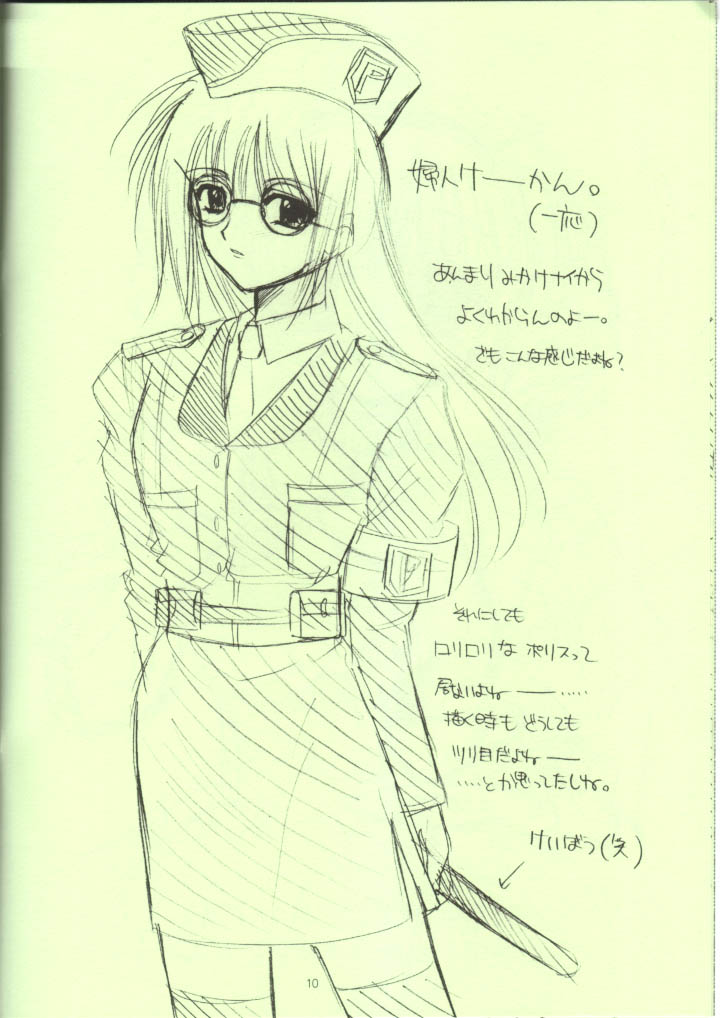 P
婦人けーかん。
(一応)
あんまりみかけナイから
よくわからんのよー。
でもこんな感じだよね?
P
それにしても
ロリロリな ポリスって
居ないよね ── ……
描く時も どうしても
ツリ目だよねー
‥‥とか思ってたしね。
けいぼう(笑)
10